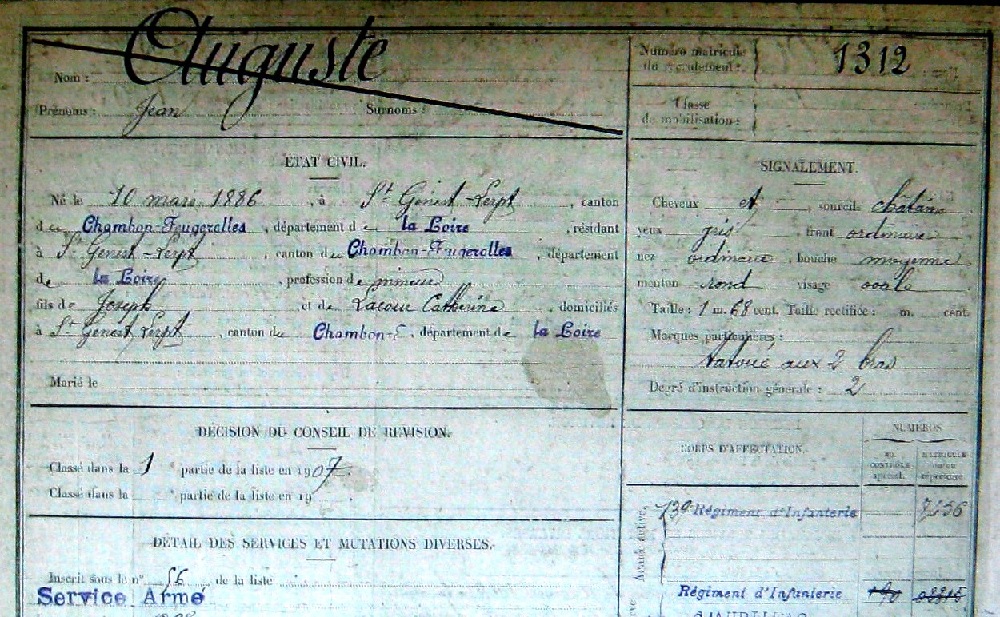 Nom : Auguste
Prénoms : Jean Surnoms :
Numéro matricule du recrutement : 1312
Classe de mobilisation :
ÉTAT CIVIL.
Né le 10 mars 1886, à St Genest-Lerpt, canton
de Chambon-Feugerolles, département de la Loire, résidant
à St Genest-Lerpt, canton de Chambon-Feugerolles, département
de la Loire, profession de mineur
fils de Joseph et de Catherine domiciliés
à St Genest-Lerpt, canton de Chambon-F, département de la Loire
Marié le
SIGNALEMENT.
Cheveux et sourcils châtains
yeux gris front ordinaire
nez ordinaire, bouche moyenne
menton rond visage ovale
Taille : 1 m. 68 cent. Taille rectifiée : m. cent.
Marques particulières :
tatoué aux 2 bras
Degré d'instruction générale : 2
DÉCISION DU CONSEIL DE RÉVISION.
Classé dans la 1e partie de la liste en 1907.
Classé dans la e partie de la liste en 19
DÉTAIL DES SERVICES ET MUTATIONS DIVERSES.
Inscrit sous le n° 56 de la liste
Service Armé
CORPS D'AFFECTATION.
NUMÉROS
Régiment d'Infanterie
Régiment d'Infanterie